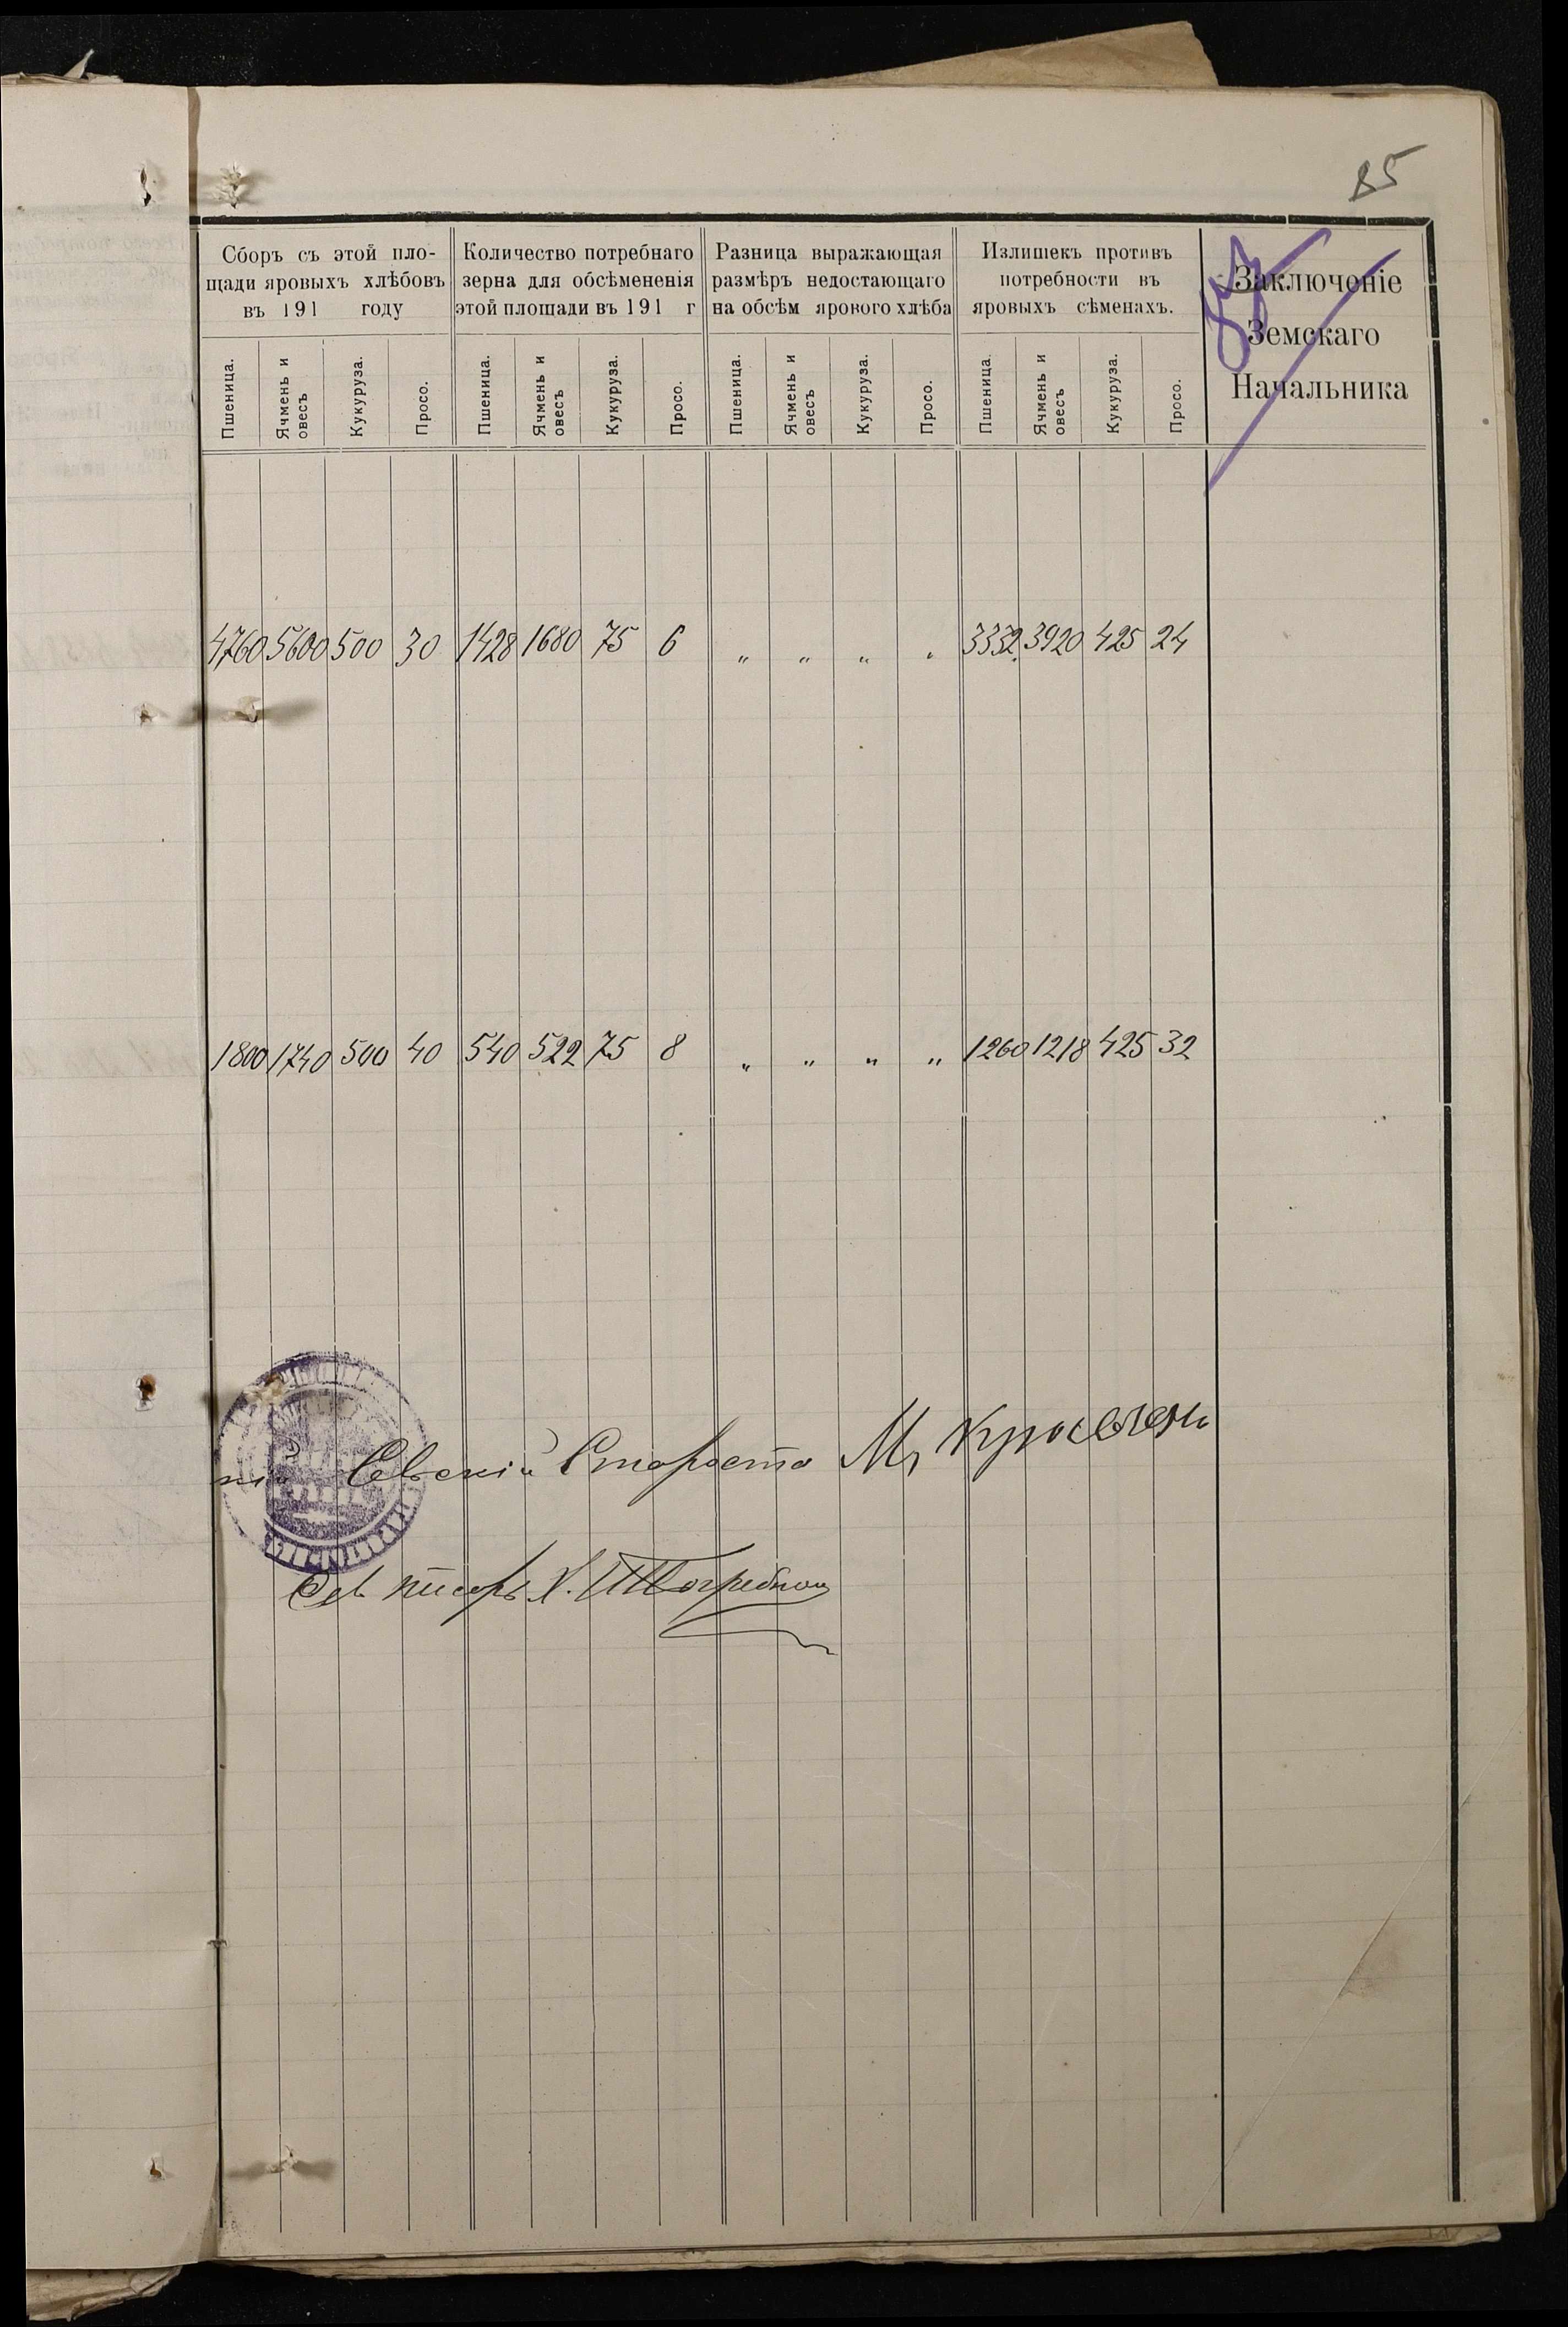 85
Сборъ съ этой пло-
щади яровыхъ хлѣбовъ
въ 191 году
Количество потребнаго
зерна для обсѣмененія
этой площади въ 191 г
Разница выражающая
размѣръ недостающаго
на обсѣм ярового хлѣба
Излишекъ противъ
потребности въ
яровыхъ сѣменахъ.
Заключеніе
Земскаго
Начальника
Пшеница.
Ячмень и
овесъ
Кукуруза.
Просо.
Пшеница.
Ячмень и
овесъ
Кукуруза.
Просо.
Пшеница.
Ячмень и
овесъ
Кукуруза.
Просо.
Пшеница.
Ячмень и
овесъ
Кукуруза.
Просо.
4760 5600 500 30 1428 1680 75 6 " " " " 3332 3920 425 24
1800 1740 500 40 540 522 75 8 " " " " 1260 1218 425 32
Сельскій Староста М
Сел писарь Х.